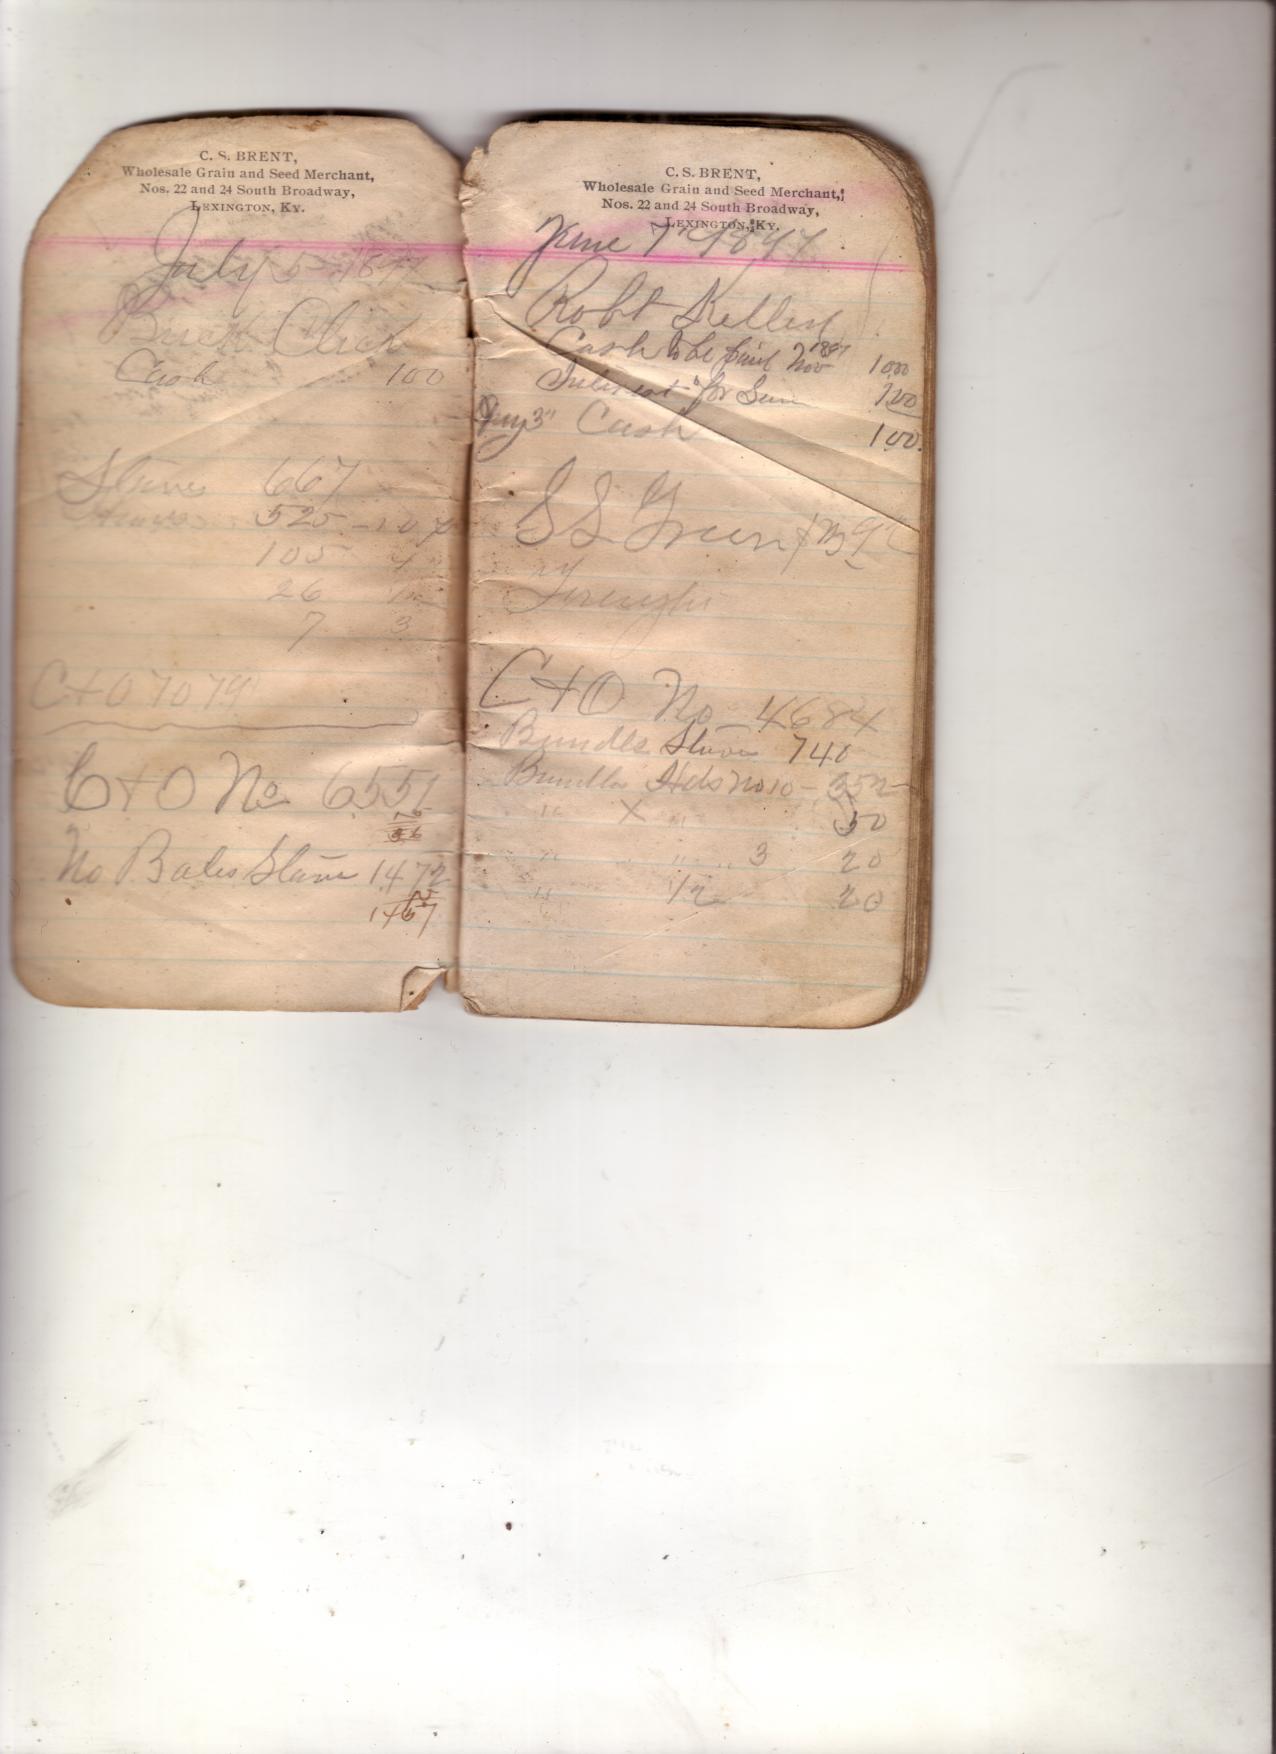 C. S. BRENT,
Wholesale Grain and Seed Merchant,
Nos. 22 and 24 South Broadway,
LEXINGTON, KY.
July 5 1897
Cash 100
Staves 667
525 - 10
105 4
26
7 3
C+O 7079
C+O No 6551
No Bales Staves 1472
1467
C. S. BRENT,
Wholesale Grain and Seed Merchant,
Nos. 22 and 24 South Broadway,
LEXINGTON, KY.
June 1897
Robt Kelley
Cash to be paid Nov 1897
Interest for
Cash 100
S S Green
C+O No 4684
Bundles Staves 740
Bundles Hds No 10 - 352
" X " 50
" " " 3 20
" 1/2 20